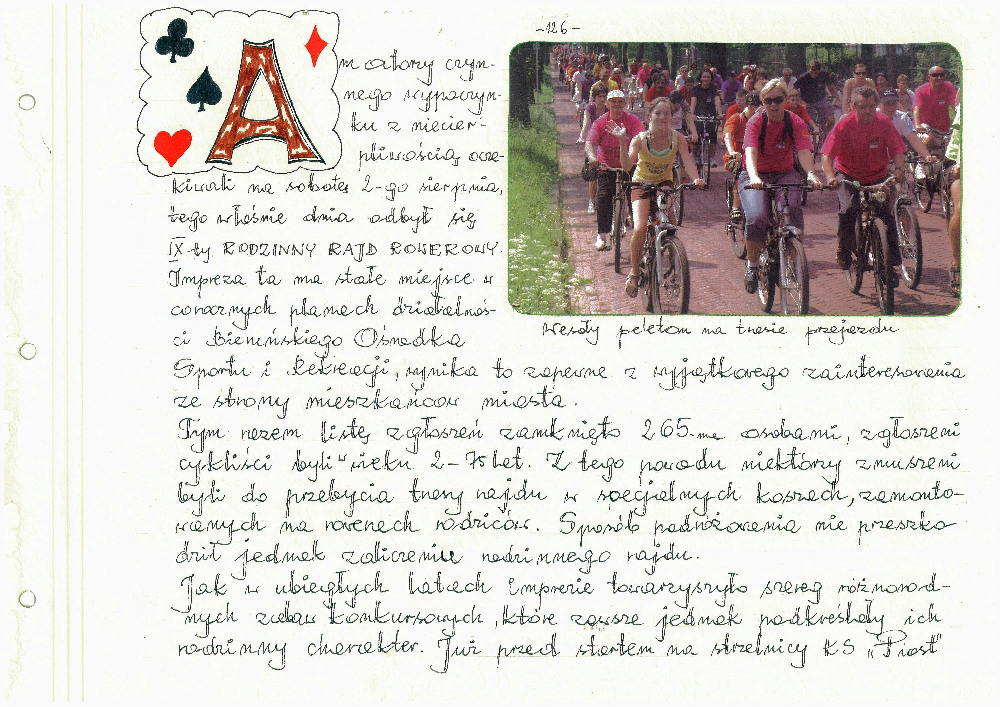 -126-
Amatorzy czyn-
nego wypoczyn-
ku z niecier-
pliwością ocze-
kiwali na sobotę 2-go sierpnia,
tego właśnie dnia odbył się
IX-ty RODZINNY RAJD ROWEROWY.
Impreza ta ma stałe miejsce w
corocznych planach działalnoś-
ci Bieruńskiego Ośrodka
Wesoły peleton na trasie przejazdu
Sportu i Rekreacji, wynika to zapewne z wyjątkowego zainteresowania
ze strony mieszkańców miasta.
Tym razem listę zgłoszeń zamknięto 265-ma osobami, zgłoszeni
cykliści byli w wieku 2-75 lat. Z tego powodu niektórzy zmuszeni
byli do przebycia trasy rajdu w specjalnych koszach, zamonto-
wanych na rowerach rodziców. Sposób podróżowania nie przeszko
dził jednak zaliczeniu rodzinnego rajdu.
Jak w ubiegłych latach imprezie towarzyszyło szereg różnorod-
nych zabaw konkursowych, które zawsze jednak podkreślały ich
rodzinny charakter. Już przed startem na strzelnicy KS „Piast"